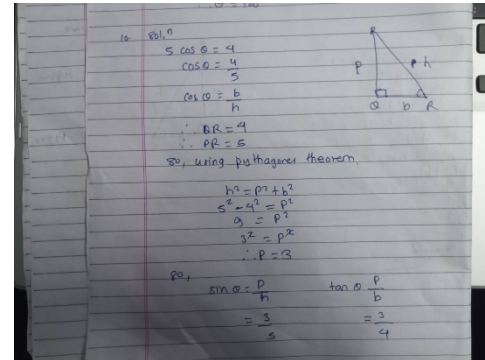 10. Sol,ⁿ
5 cos θ = 4
cos θ = 4/5
cos θ = b/h
∴ QR = 4
∴ PR = 5
So, using pythagores theorem,
h² = p² + b²
5² - 4² = p²
9 = p²
3² = p²
∴ P = 3
So,
sin θ = p/h tan θ p/b
= 3/5 = 3/4
P h
Q b R